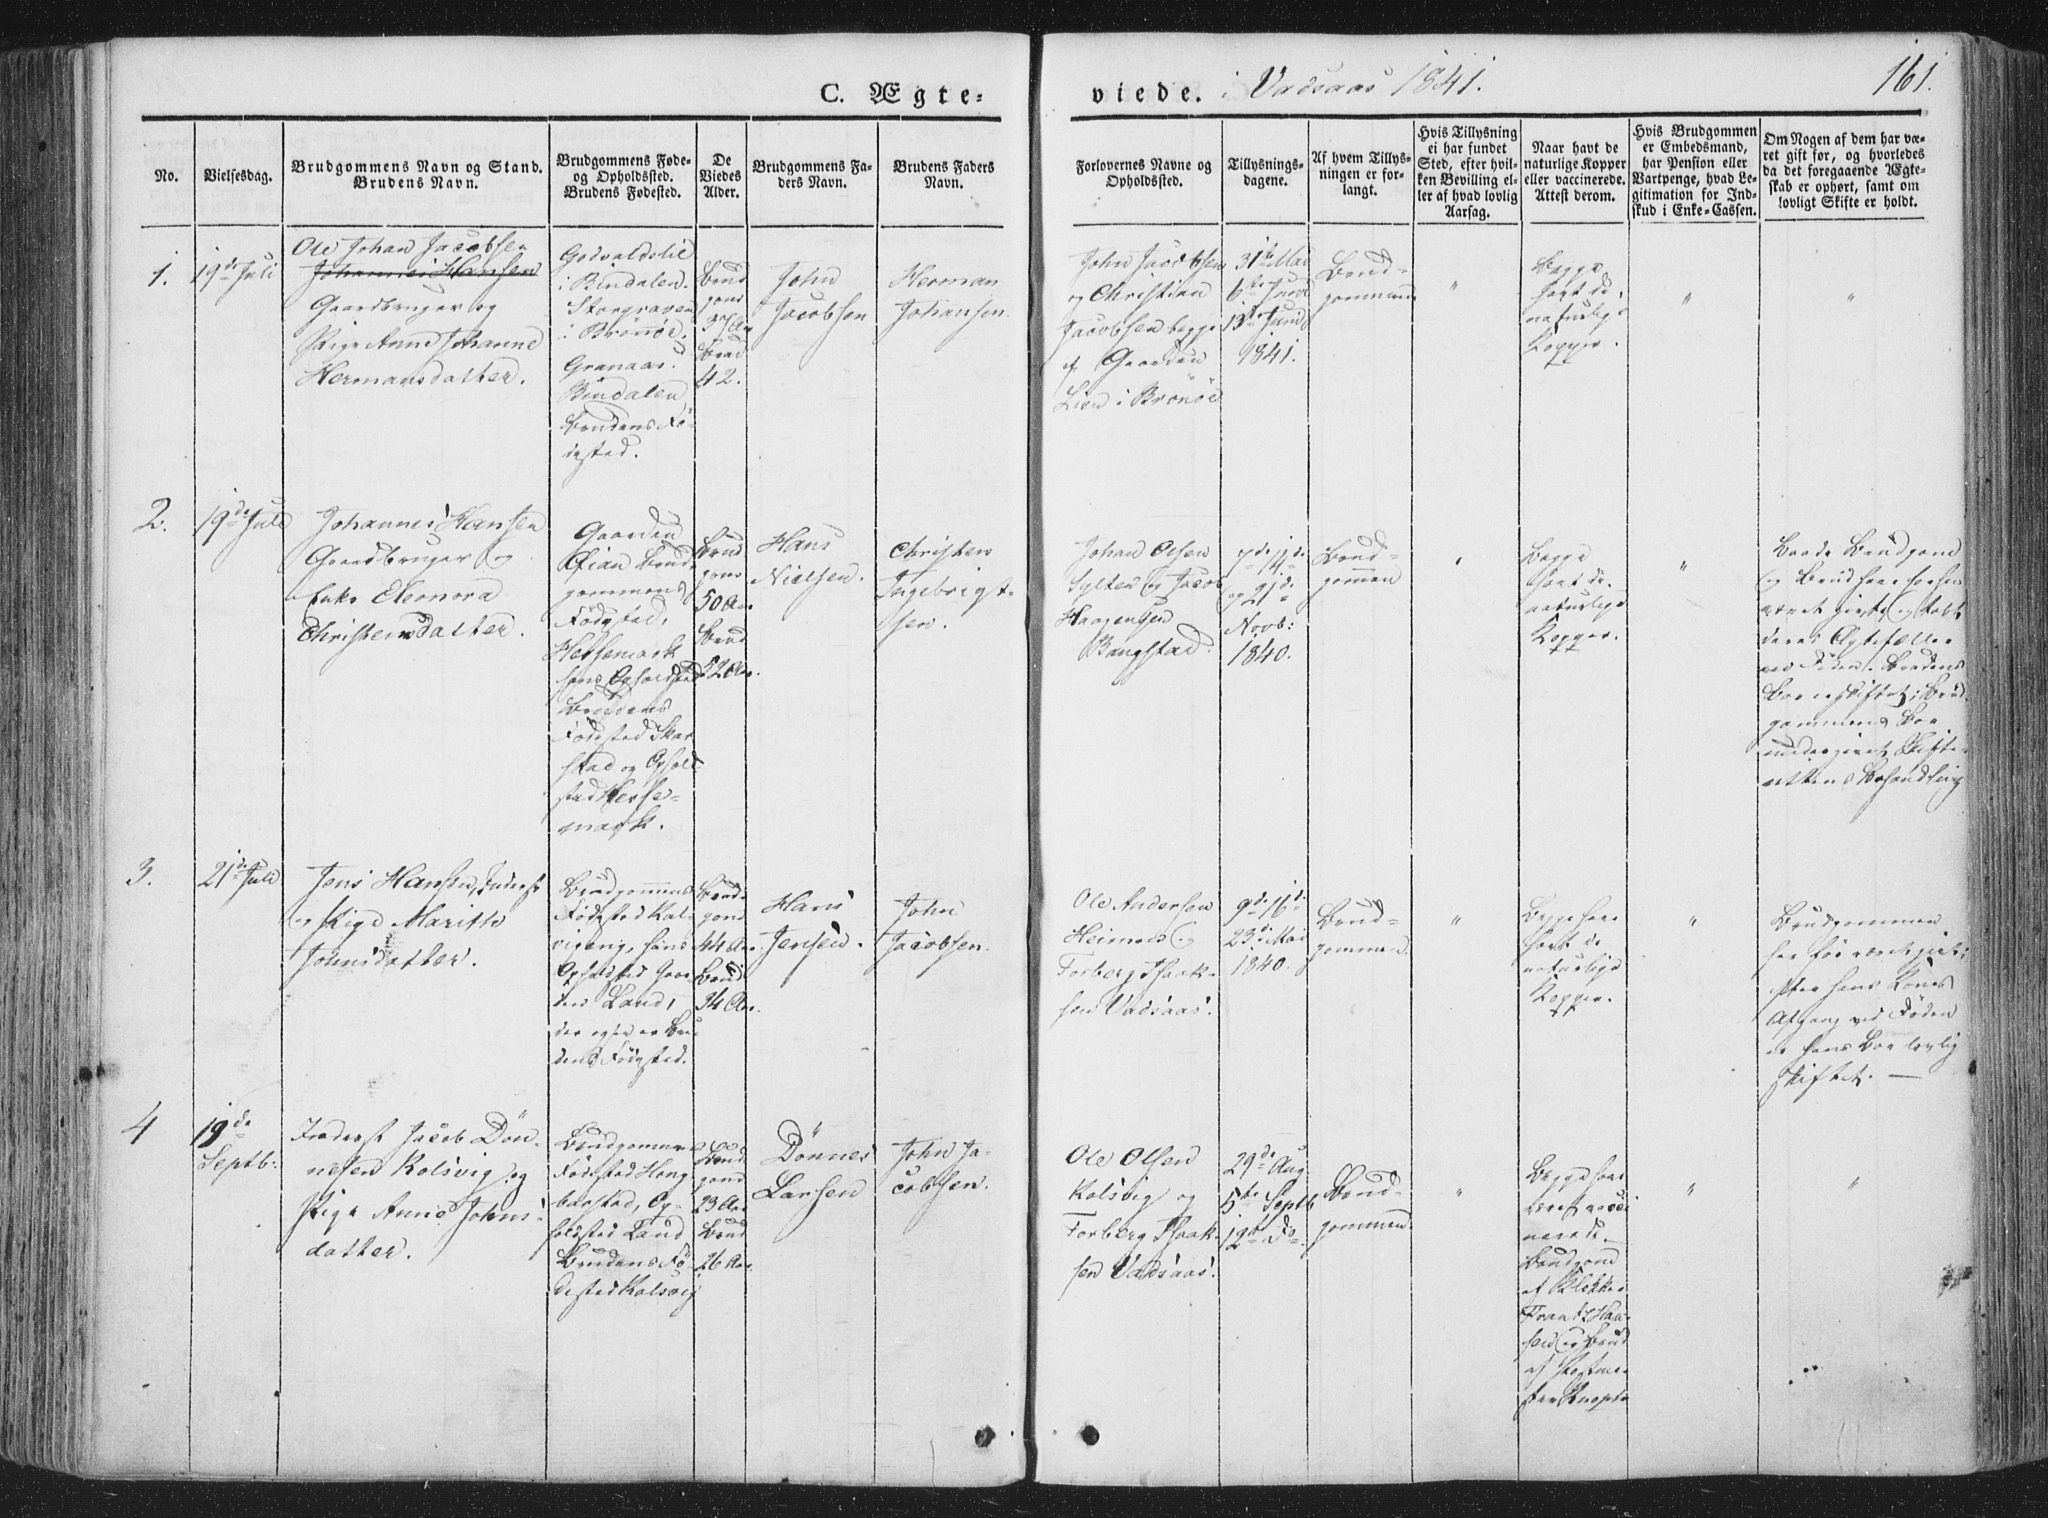 C. Ægte-
viede. i Vadsaas 1841.
161.
No.
Vielsesdag.
Brudgommens Navn og Stand.
Brudens Navn.
Brudgommens Føde-
og Opholdssted.
Brudens Fødested.
De
Viedes
Alder.
Brudgommens Fa-
ders Navn.
Brudens Faders
Navn.
Forlovernes Navne og
Opholdssted.
Tillysnings-
dagene.
Af hvem Tillys-
ningen er for-
langt.
Hvis Tillysning
ei har fundet
Sted, efter hvil-
ken Bevilling el-
ler af hvad lovlig
Aarsag.
Naar havt de
naturlige Kopper
eller vaccinerede.
Attest derom.
Hvis Brudgommen
er Embedsmand,
har Pension eller
Vartpenge, hvad Le-
gitimation for Ind-
skud i Enke-Cassen.
Om Nogen af dem har væ-
ret gift før, og hvorledes
da det foregaaende Ægte-
skab er ophørt, samt om
lovligt Skifte er holdt.
1.
19de Juli
Ole Johan Jacobsen
Johannes Hansen
Gaardbruger og
Pige Anne Johanne
Hermansdatter.
Godvaldslid
i Bindalen.
Storgraven
i Brönöe.
Granaas.
Bindalen
Brudens Fö-
dested.
Brud
gom
37 Aar
Brud
42.
John
Jacobsen
Herman
Johansen.
John Jacobsen
og Christian
Jacobsen begge
af Gaarden
Lien i Brönöe
31te Mai
6te Juni
13de Juni
1841.
Brud-
gommen
"
Begge
havt de
naturlige
Kopper.
"
"
2.
19de Juli
Johannes Hansen
Gaardbruger og
Enke Eleonora
Christensdatter.
Gaarden
Brud-
gommens
Födested,
Helsemark
hans Opholdsted
Brudens
Födested Skar
stad og Ophold
sted Helse-
mark.
Brud
gom
50 Aar
Brud
52 Aar.
Hans
Nielsen.
Christen
Ingebrigt-
sen.
Johan Olsen
Sylten og Jacob
Haagensen
Bangstad.
7de 14de
og 21de
Novb:
1840.
Brud-
gommen
"
Begge
havt de
naturlige
Kopper.
"
Baade Brudgom
og Brud have forhen
været gifte og tabt
deres Ægtefæller
ved Döden. Brudens
Boe er skiftet; Brud
gommens Boe
undergivet Skifte-
rettens Behandling
3.
21de Juli
Jens Hansen, Inderst
og Pige Marith
Johnsdatter.
Brudgommens
Födested Kol-
vigeng, hans
Opholdsted Gaar
den Land,
der ogsaa er Bru
dens Födested.
Brud-
gom
44 Aar.
Brud
34 Aar.
Hans
Jensen.
John
Jacobsen.
Ole Andersen
Heimnes og
Forberg Isaak-
sen Vadsaas.
9de 16de
23de Mai
1840.
Brud-
gommen
"
Begge have
havt de
naturlige
Kopper.
"
Brudgommen
har för været gift;
efter hans Kones
Afgang ved Döden
er hans Boe lovlig
skiftet. —
4
19de
Septb:
Inderst Jacob Dön-
nesen Kolsvig og
Pige Anne Johns-
datter.
Brudgommens
Födested Hong
barstad, Op-
holdsted Land
Brudens Fö-
dested Kolsvig
Brud
gom
23 Aar
Brud
26 Aar.
Dönnes
Larsen
John Ja-
cobsen.
Ole Olsen
Kolsvig og
Forberg Isaak-
sen Vadsaas.
29de Aug
5te Septb
12te Do
Brud-
gommen.
"
Begge have
været vacci
nerede.
Brudgom
af Klokker
Frantz Han-
sen og Brud
af
"
"